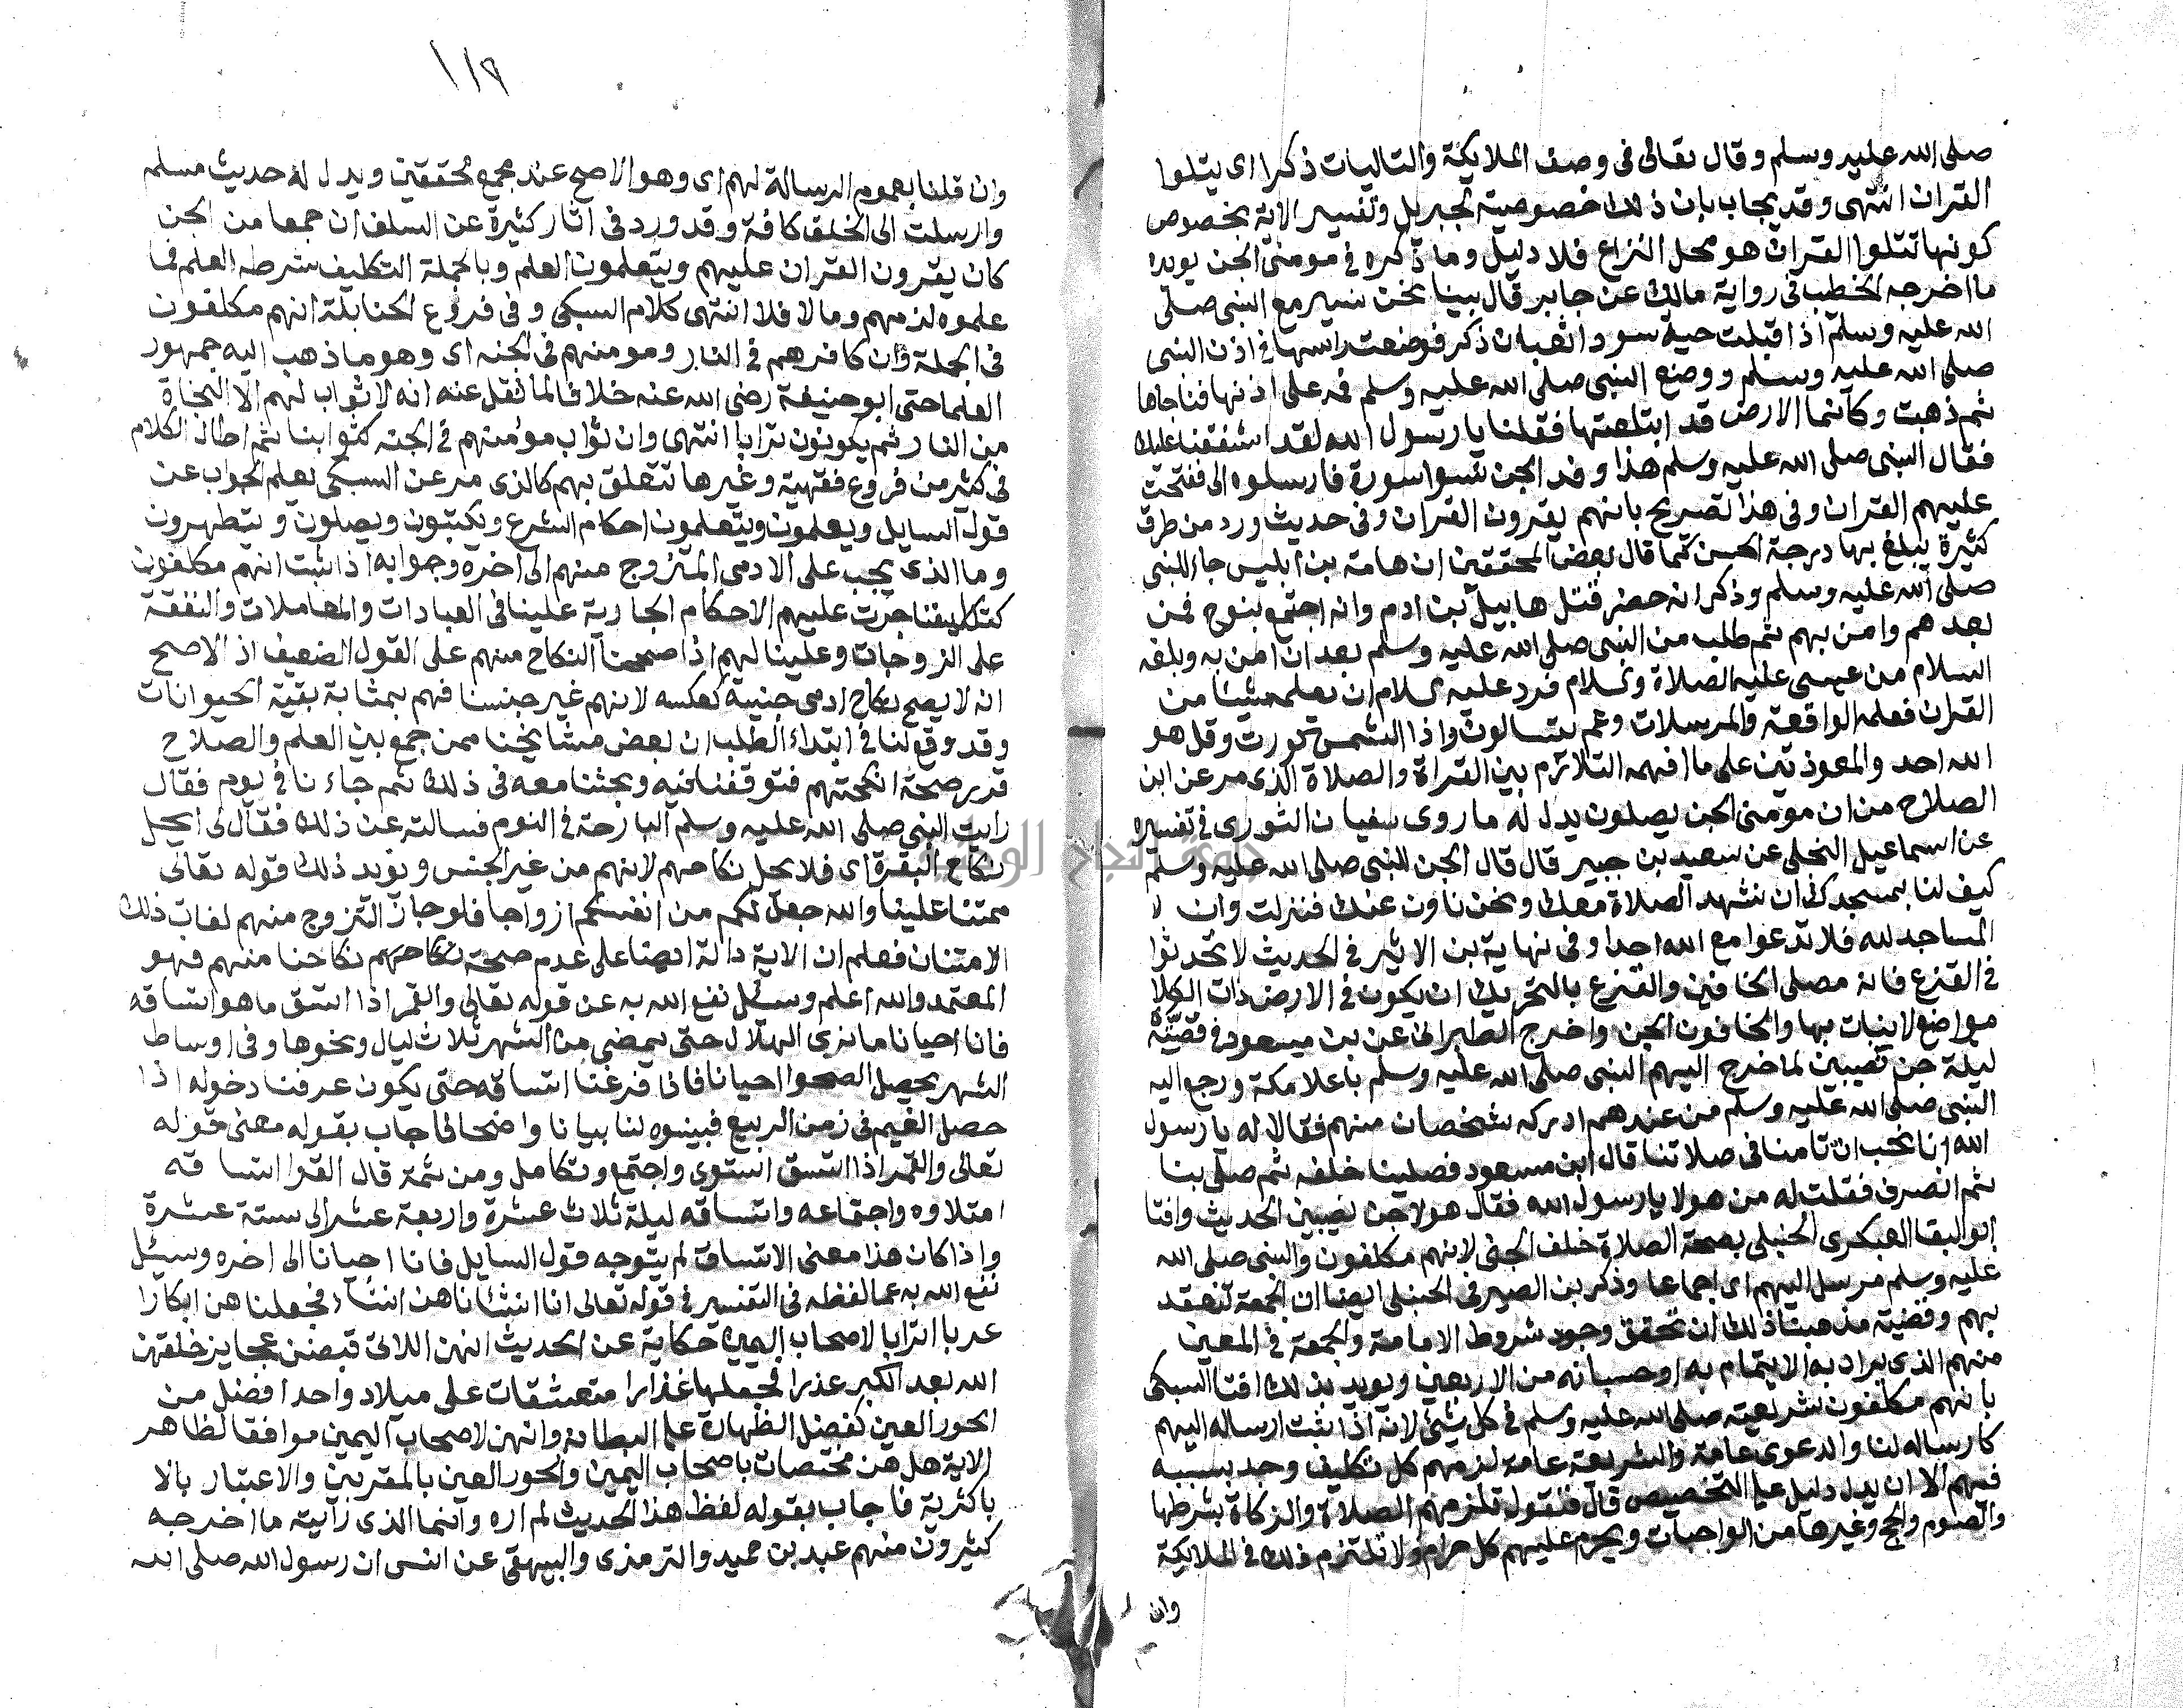 صلى الله عليه وسلم وقال تعالى فى وصف الملايكة والتاليات ذكرا اى يتلوا
القران انتهى وقد يجاب بان ذلك خصوصية لجبريل وتفسير الاية بخصوص
كونها تتلوا القران هو محل النزاع فلا دليل وما ذكره فى مومنى الجن يويده
ما اخرجه الخطيب فى رواية مالك عن جابر قال بينا نحن نسير مع النبى صلى
الله عليه وسلم اذ اقبلت حية سودا ثعبان ذكر فوضعت راسها فى اذن النبى
صلى الله عليه وسلم ووضع النبى صلى الله عليه وسلم فمه على اذنها فناجاها
ثم ذهبت وكانما الارض قد ابتلعتها فقلنا يا رسول الله لقد اشفقنا عليك
فقال النبى صلى الله عليه وسلم هذا وفد الجن نسوا سورة فارسلوه الى ففتحت
عليهم القران وفى هذا تصريح بانهم يقرون القران وفى حديث ورد من طرق
كثيرة يبلغ بها درجة الحسن كما قال بعض المحققين ان هامة بن ابليس جاء للنبى
صلى الله عليه وسلم وذكر انه حضر قتل هابيل بن ادم وانه اجتمع بنوح فمن
بعدهم وامن بهم ثم طلب من النبى صلى الله عليه وسلم بعد ان امن به وبلغه
السلام من عيسى عليه الصلاة والسلام فرد عليه السلام ان يعلمه شيئا من
القران فعلمه الواقعة والمرسلات وعم يتسالون واذا الشمس كورت وقل هو
الله احد والمعوذتين على ما افهمه التلازم بين القراة والصلاة الذى مر عن ابن
الصلاح من ان مومنى الجن يصلون يدل له ما روى سفيان الثورى فى تفسيره
عن اسماعيل البجلى عن سعيد بن جبير قال قال الجن للنبى صلى الله عليه وسلم
كيف لنا بمسجدك ان نشهد الصلاة معك ونحن ناون عنك فنزلت وان لا
المساجد لله فلا تدعوا مع الله احدا وفى نهاية بن الاثير فى الحديث لا تحدثوا
فى القزع فانه مصلى الخافين والقزع بالتحريك ان يكون فى الارض ذات الكلاء
مواضع لا ينبات بها والخافون الجن واخرج الطبرانى عن بن مسعود فى قصّته
ليلة جن نصيبين لما خرج اليهم النبى صلى الله عليه وسلم باعلا مكة ورجع اليه
النبى صلى الله عليه وسلم من عندهم ادركه شخصان منهم فقالا له يا رسول
الله انا نحب ان تامنا فى صلاتنا قال ابن مسعود فصلينا خلفه ثم صلى بنا
ثم انصرف فقلت له من هولا يا رسول الله فقال هولا جن نصيبين الحديث وافتا
ابو البقا العبكرى الحنبلى بصحة الصلاة خلف الجنى لانهم مكلفون والنبى صلى الله
عليه وسلم مرسل اليهم اى اجماعا وذكر بن الصيرفى الحنبلى ايضا ان الجمعة تنعقد
بهم وقضية مذهبنا ذلك ان تحقق وجود شروط الامامة والجمعة فى المعين
منهم الذى يراد به الايتمام به او حسبانه من الاربعين ويويد بذلك افتا السبكى
بانهم مكلفون شريعته صلى الله عليه وسلم فى كل شيئ لانه اذا ثبت ارساله اليهم
كارساله لنا والدعوى عامة والشريعة عامة لزمهم كل تكليف وجد بسببه
فيهم الا ان يدل دليل على التخصيص قال فنقول تلزمهم الصلاة والزكاة بشرطها
والصوم والحج وغيرها من الواجبات ويحرم عليهم كل حرام ولا نلتزم ذلك فى الملايكة
وان
١١٩
وان قلنا بعموم الرسالة لهم اى وهو الاصح عند جمع محققين ويدل له حديث مسلم
وارسلت الى الخلق كافة وقد ورد فى اثار كثيرة عن السلف ان جمعا من الجن
كان يقرون القران عليهم ويتعلمون العلم وبالجملة التكليف شرطه العلم فما
علموه لزمهم وما لا فلا انتهى كلام السبكى وفى فروع الحنابلة انهم مكلفون
فى الجملة وان كافرهم فى النار ومومنهم فى الجنه اى وهو ما ذهب اليه جمهور
العلما حتى ابو حنيفة رضى الله عنه خلافا لما نقل عنه انه لا ثواب لهم الا النجاة
من النار ثم يكونون ترابا انتهى وان ثواب مومنهم فى الجنه كثوابنا ثم اطال الكلام
فى كثير من فروع فقهية وغيرها تتعلق بهم كالذى مر عن السبكى يعلم الجواب عن
قول السايل ويعلمون ويتعلمون احكام الشرع ويكتبون ويصلون ويتطهرون
وما الذى يجب على الادمى المتزوج منهم الى اخره وجوابه اذا ثبت انهم مكلفون
كتكليفنا جرت عليهم الاحكام الجارية علينا فى العبادات والمعاملات والنفقة
على الزوجات وعلينا لهم اذا صححنا النكاح منهم على القول الضعيف اذ الاصح
انه لا يصح نكاح ادمى جنية كعكسه لانهم غير جنسنا فهم بمثابة بقية الحيوانات
وقد وقع لنا فى ابتداء الطلب ان بعض مشايخنا ممن جمع بين العلم والصلاح
قرر صحة انكحتهم فتوقفنا فيه وبحثنا معه فى ذلك ثم جاءنا فى يوم فقال
رايت النبى صلى الله عليه وسلم البارحة فى النوم فسالته عن ذلك فقال لى ايحل
نكاح البقرة اى فلا يحل نكاحهم لانهم من غير الجنس ويويد ذلك قوله تعالى
ممتنا علينا والله جعل لكم من انفسكم ازواجا فلو جاز التزوج منهم لفات ذلك
الامتنان فعلم ان الاية دالة ايضا على عدم صحة نكاحهم نكاحنا منهم فهو
المعتمد والله اعلم وسئل نفع الله به عن قوله تعالى والقمر اذا اتسق ما هو اتساقه
فانا احيانا ما نرى الهلال حتى يمضى من الشهر ثلاث ليال ونحوها وفى اوساط
الشهر يحصل الصحوا احيانا فاذا فرغنا اتساقه حتى يكون عرفنا دخوله اذا
حصل الغيم فى زمن الربيع فبينوه لنا بيانا واضحا فاجاب بقوله معنى قوله
تعالى والقمر اذا اتسق استوى واجتمع وتكامل ومن ثمة قال الفرا اتساقه
امتلاوه واجتماعه واتساقه ليلة ثلاث عشرة واربعة عشر الى ستة عشرة
واذا كان هذا معنى الاتساق لم يتوجه قول السايل فانا احيانا الى اخره وسيئل
نفع الله به عما لفظه فى التفسير فى قوله تعالى انا انشاناهن انشاء فجعلناهن ابكارا
عربا اترابا لاصحاب اليمين حكاية عن الحديث انهن اللاتى قبضن عجايز خلقهن
الله بعد الكبر عذرا فجعلها عذارا متعشقات على ميلاد واحد افضل من
الحور العين كفضل الظهارة على البطانة وانهن لاصحاب اليمين موافقا لظاهر
الاية هل هن مختصات باصحاب اليمين والحور العين بالمقربين والاعتبار بالا
باكثرية فاجاب بقوله لفظ هذا الحديث لم اره وانما الذى رايته ما اخرجه
كثيرون منهم عبد بن حميد والترمذى والبيهقى عن انس ان رسول الله صلى الله